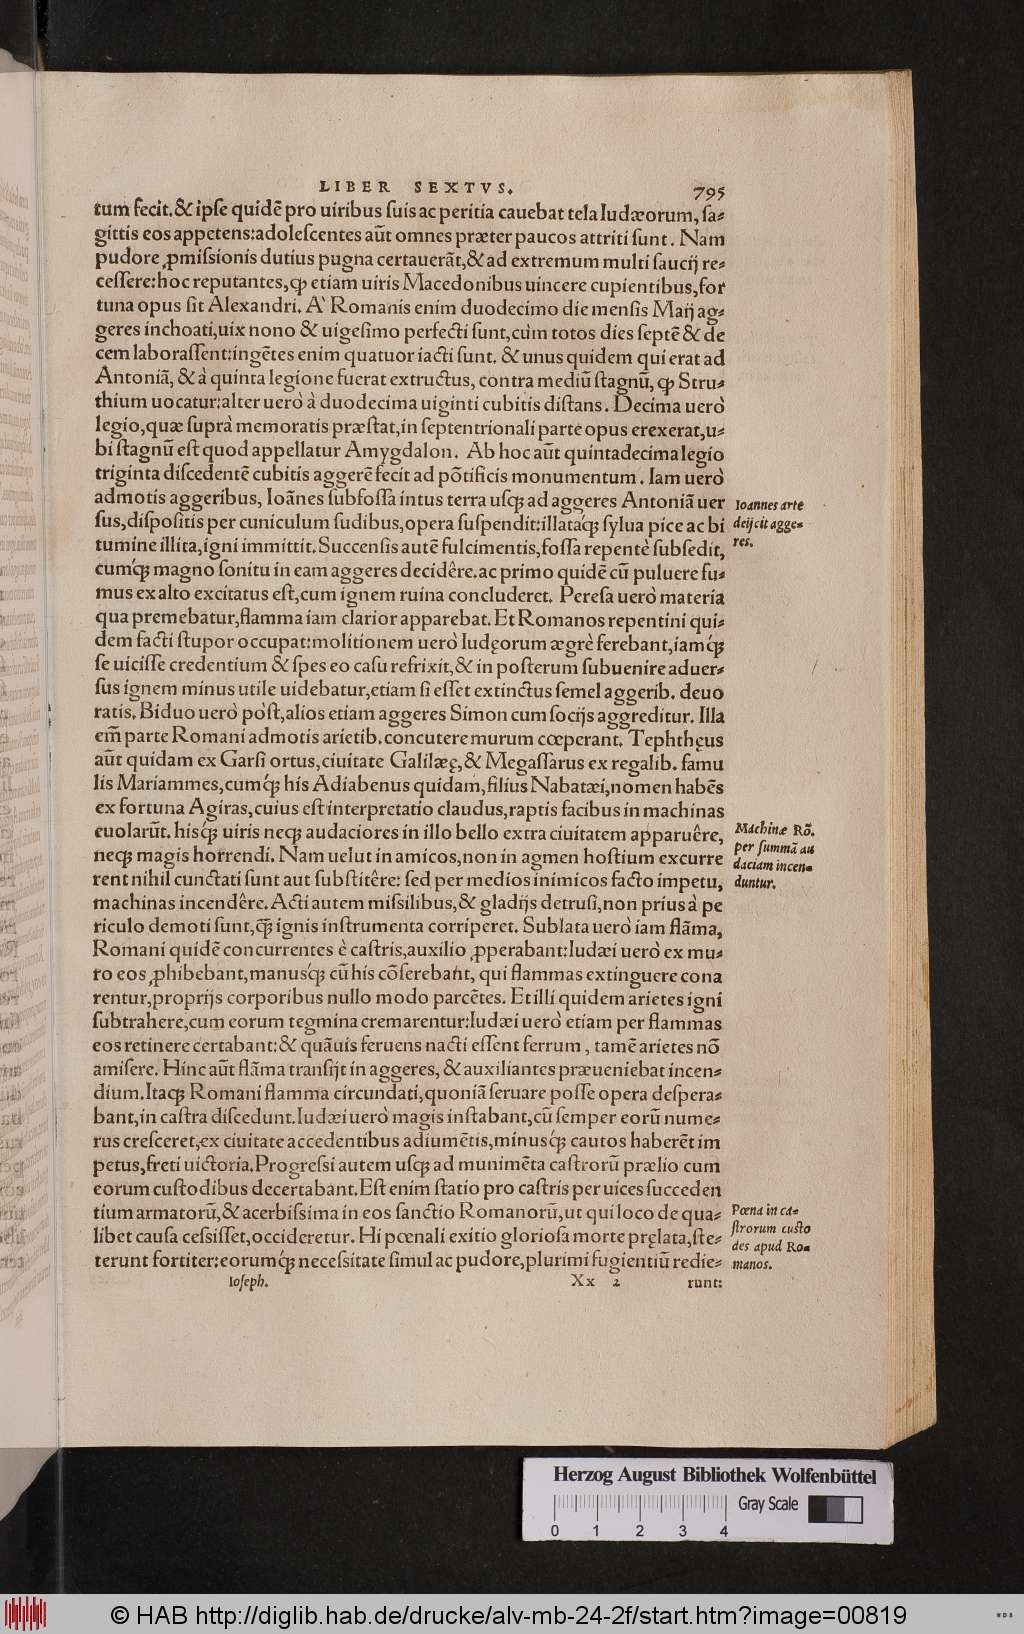 LIBER SEXTVS. 795
tum fecit.& ipſe quidē pro uiribus ſuis ac peritia cauebat tela Iudæorum, ſa-
gittis eos appetens:adoleſcentes aūt omnes præter paucos attriti ſunt. Nam
pudore ꝓmiſsionis dutius pugna certauerāt,& ad extremum multi ſaucij re-
ceſſere:hoc reputantes,ꝙ etiam uiris Macedonibus uincere cupientibus,for
tuna opus ſit Alexandri. A' Romanis enim duodecimo die menſis Maij ag-
geres inchoati,uix nono & uigeſimo perfecti ſunt,cùm totos dies ſeptē & de
cem laboraſſent:ingētes enim quatuor iacti ſunt. & unus quidem qui erat ad
Antoniā, & à quinta legione fuerat extructus, contra mediū ſtagnū, ꝙ Stru-
thium uocatur:alter uerò à duodecima uiginti cubitis diſtans. Decima uerò
legio,quæ ſuprà memoratis præſtat,in ſeptentrionali parte opus erexerat,u-
bi ſtagnū eſt quod appellatur Amygdalon. Ab hoc aūt quintadecima legio
triginta diſcedentē cubitis aggerē fecit ad pōtificis monumentum. Iam uerò
admotis aggeribus, Ioānes ſubfoſſa intus terra uſqꝫ ad aggeres Antoniā uer
ſus,diſpoſitis per cuniculum ſudibus,opera ſuſpendit:illatáqꝫ ſylua pice ac bi
tumine illita,igni immittit. Succenſis autē fulcimentis,foſſa repentè ſubſedit,
cumq́ꝫ magno ſonitu in eam aggeres decidêre.ac primo quidē cū puluere fu-
mus ex alto excitatus eſt,cum ignem ruina concluderet. Pereſa uerò materia
qua premebatur,flamma iam clarior apparebat. Et Romanos repentini qui-
dem facti ſtupor occupat:molitionem uerò Iudęorum ægrè ferebant,iamq́ꝫ
ſe uiciſſe credentium & ſpes eo caſu refrixit,& in poſterum ſubuenire aduer-
ſus ignem minus utile uidebatur,etiam ſi eſſet extinctus ſemel aggerib. deuo
ratis. Biduo uerò pòſt,alios etiam aggeres Simon cum ſocijs aggreditur. Illa
em̄ parte Romani admotis arietib.concutere murum cœperant. Tephthęus
aūt quidam ex Garſi ortus,ciuitate Galilæę,& Megaſſarus ex regalib. famu
lis Mariammes,cumq́ꝫ his Adiabenus quidam,filius Nabatæi,nomen habēs
ex fortuna Agiras,cuius eſt interpretatio claudus,raptis facibus in machinas
euolarūt. hisq́ꝫ uiris neqꝫ audaciores in illo bello extra ciuitatem apparuêre,
neqꝫ magis horrendi. Nam uelut in amicos,non in agmen hoſtium excurre
rent nihil cunctati ſunt aut ſubſtitêre: ſed per medios inimicos facto impetu,
machinas incendêre. Acti autem miſsilibus,& gladijs detruſi,non prius à pe
riculo demoti ſunt,q̄ꝫ ignis inſtrumenta corriperet. Sublata uerò iam flāma,
Romani quidē concurrentes è caſtris,auxilio ꝓperabant:Iudæi uerò ex mu-
ro eos ꝓhibebant,manusq́ꝫ cū his cōſerebant, qui flammas extinguere cona
rentur,proprijs corporibus nullo modo parcētes. Et illi quidem arietes igni
ſubtrahere,cum eorum tegmina cremarentur:Iudæi uerò etiam per flammas
eos retinere certabant:& quāuis feruens nacti eſſent ferrum, tamē arietes nō
amiſere. Hinc aūt flāma tranſijt in aggeres, & auxiliantes præueniebat incen-
dium.Itaqꝫ Romani flamma circundati,quoniā ſeruare poſſe opera deſpera-
bant,in caſtra diſcedunt.Iudæi uerò magis inſtabant,cū ſemper eorū nume-
rus creſceret,ex ciuitate accedentibus adiumētis,minusq́ꝫ cautos haberēt im
petus,freti uictoria.Progreſsi autem uſqꝫ ad munimēta caſtrorū prælio cum
eorum cuſtodibus decertabant.Eſt enim ſtatio pro caſtris per uices ſucceden
tium armatorū,& acerbiſsima in eos ſanctio Romanorū,ut qui loco de qua-
libet cauſa ceſsiſſet,occideretur. Hi pœnali exitio glorioſa morte pręlata,ſte-
terunt fortiter:eorumq́ꝫ neceſsitate ſimul ac pudore,plurimi fugientiū redie-
Ioſeph. Xx 2 runt:
Ioannes arte
deijcit agge-
res.
Machinæ Rō.
per ſummā au
daciam incen-
duntur.
Pœna in ca-
ſtrorum cuſto
des apud Ro-
manos.
Herzog August Bibliothek Wolfenbüttel
Gray Scale
0 1 2 3 4
© HAB http://diglib.hab.de/drucke/alv-mb-24-2f/start.htm?image=00819